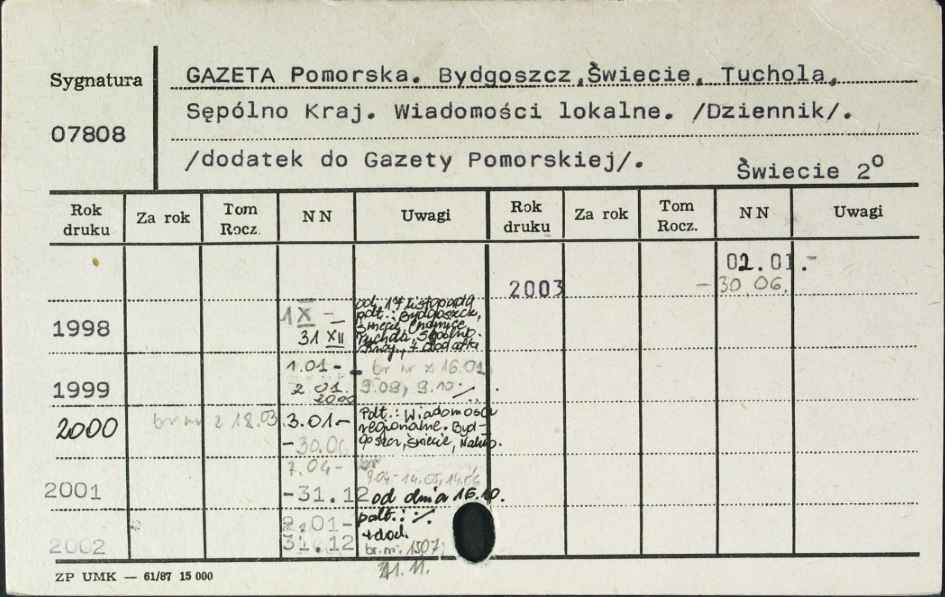 Sygnatura
07808
GAZETA Pomorska. Bydgoszcz,Świecie, Tuchola,
Sępólno Kraj. Wiadomości lokalne. /Dziennik/.
/dodatek do Gazety Pomorskiej/.
Świecie 2o
Rok druku Za rok Tom Rocz. NN Uwagi Rok druku Za rok Tom Rocz. NN Uwagi
2003 02.01.-
-30.06.
1998 1 X -
31 XII
od 17 listopada
1999 1.01-
2 01.
2000
br nr z 16.01
9.08, 9.10
2000 br nr z 18.03. 3.01-
Podt.: Wiadomości
regionalne. Byd-
goszcz, Świecie, Nakło.
2001 2.04-
-31.12 od dnia 16.10.
podt.:
2002 2.01-
31.12
+ dod.
br. nr.
21.11.
ZP UMK — 61/87 15 000